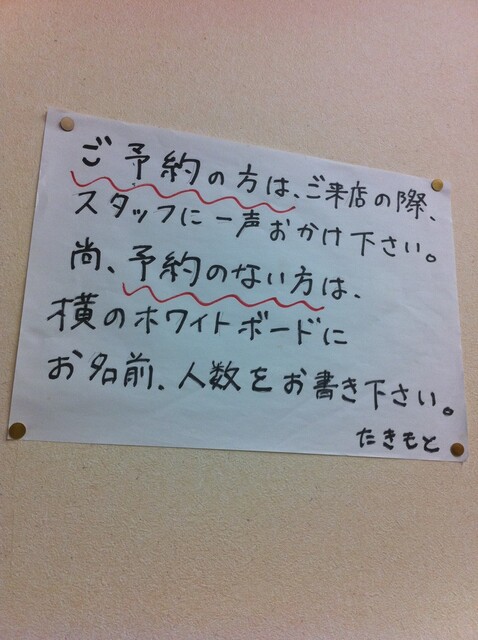 ご予約の方は、ご来店の際、
スタッフに一声おかけ下さい。
尚、予約のない方は、
横のホワイトボードに
お名前、人数をお書き下さい。
たきもと